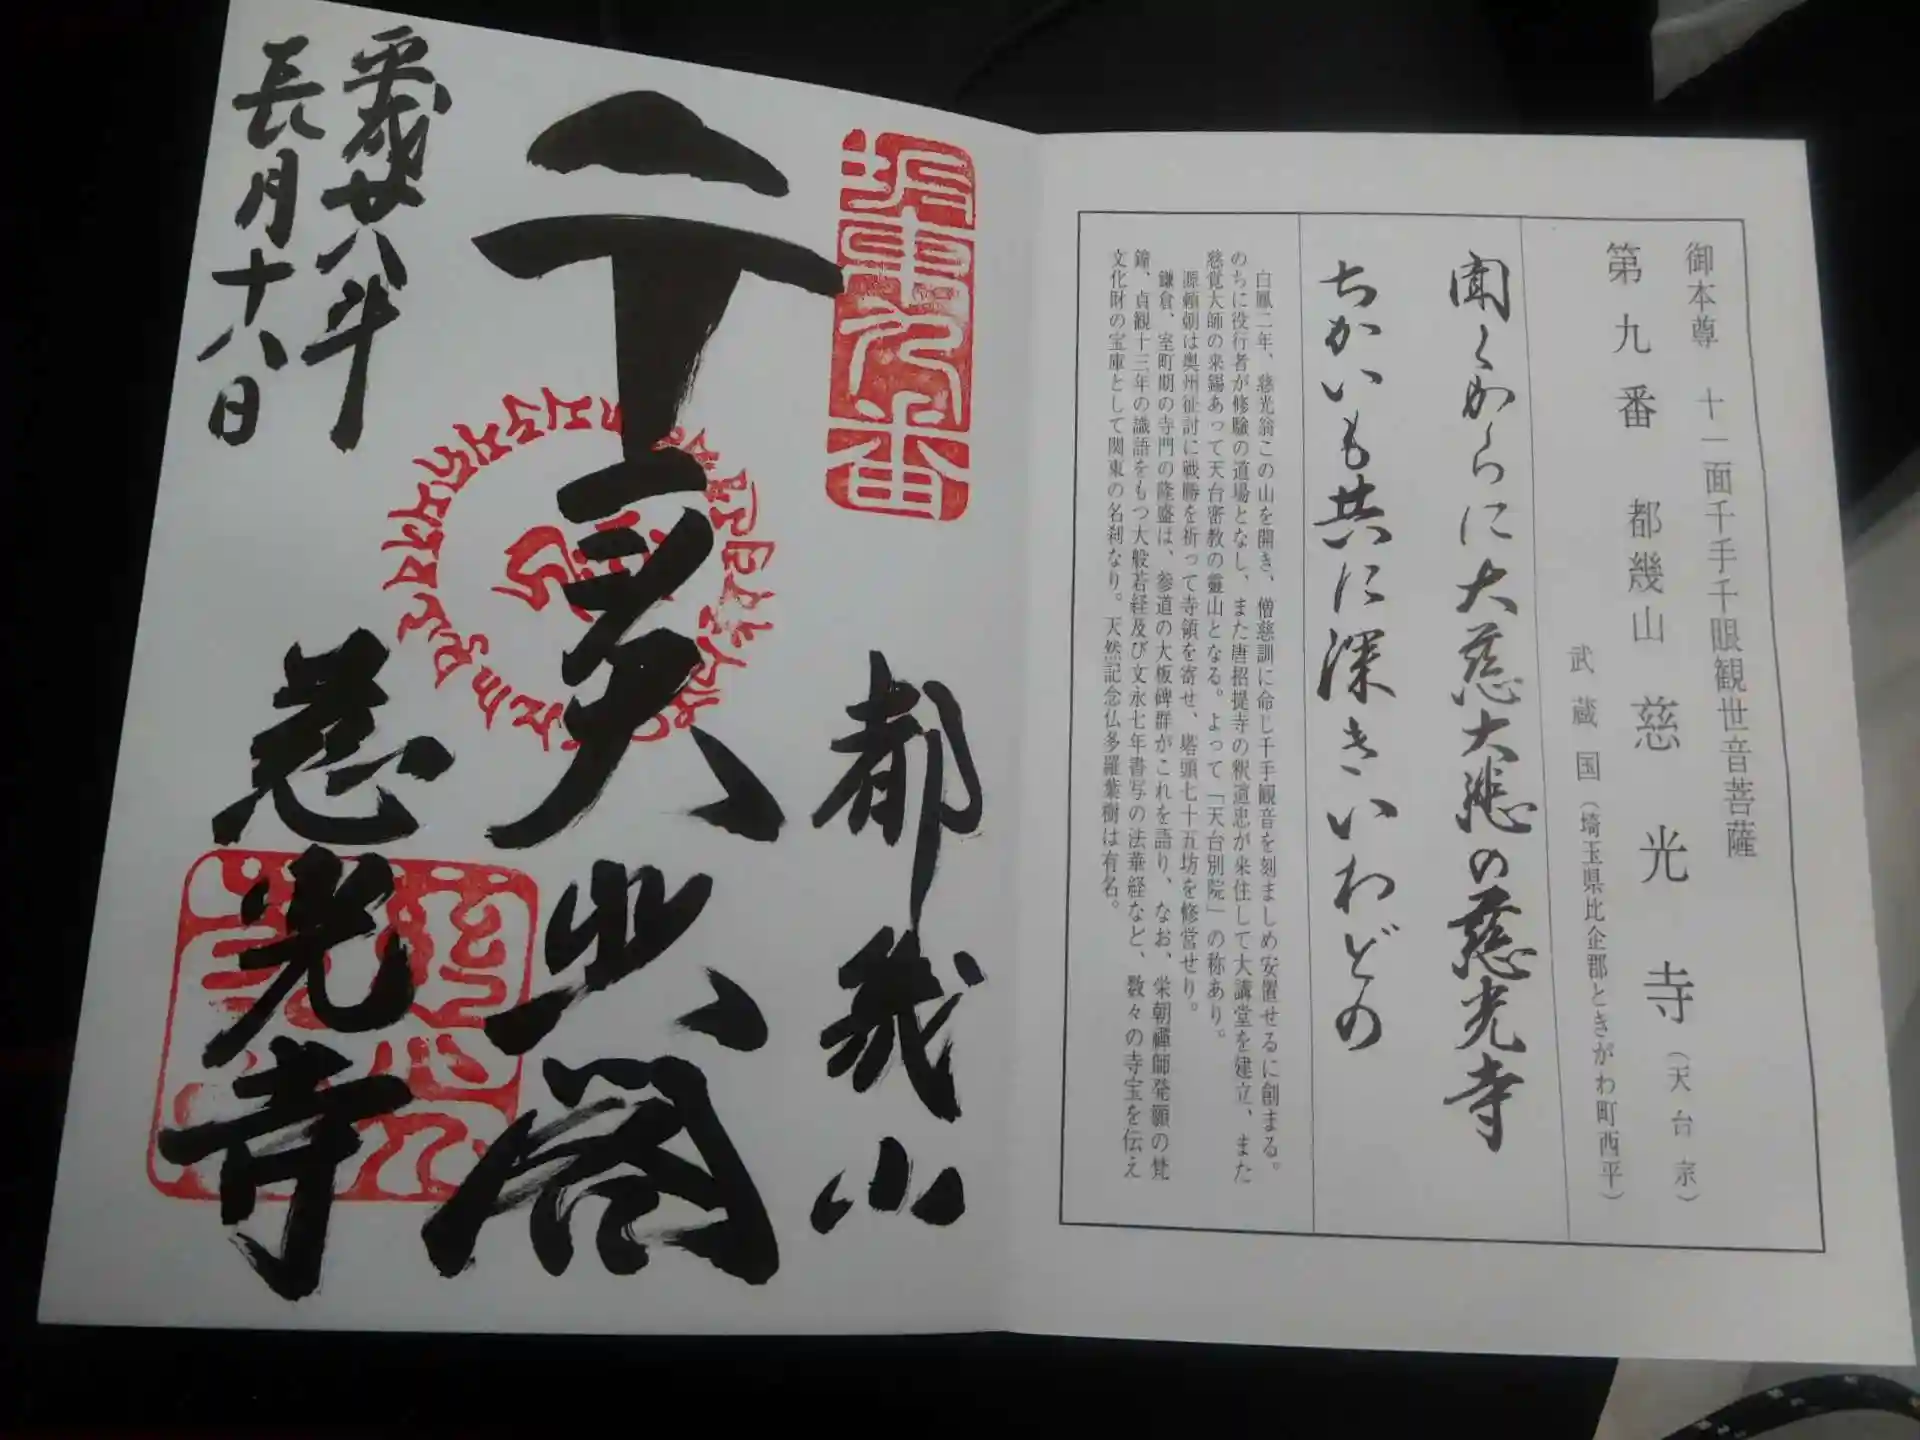 御本尊 十一面千手千眼観世音菩薩
第九番 都幾山 慈光寺（天台宗）
武蔵国（埼玉県比企郡ときがわ町西平）
聞くからに大慈大悲の慈光寺
ちかいも共に深きいわどの
白鳳二年、慈光翁この山を開き、僧慈訓に命じ千手観音を刻ましめ安置せるに創まる。
のちに役行者が修験の道場となし、また唐招提寺の釈道忠が来住して大講堂を建立、また
慈覚大師の来錫あって天台密教の靈山となる。よって「天台別院」の称あり。
源頼朝は奥州征討に戦勝を祈って寺領を寄せ、塔頭七十五坊を修営せり。
鎌倉、室町期の寺門の隆盛は、参道の大板碑群がこれを語り、なお、栄朝禪師発願の梵
鐘、貞観十三年の識語をもつ大般若経及び文永七年書写の法華経など、数々の寺宝を伝え
文化財の宝庫として関東の名刹なり。天然記念仏多羅葉樹は有名。
坂東九番
都幾山
慈光寺
平成廿八年
長月十八日